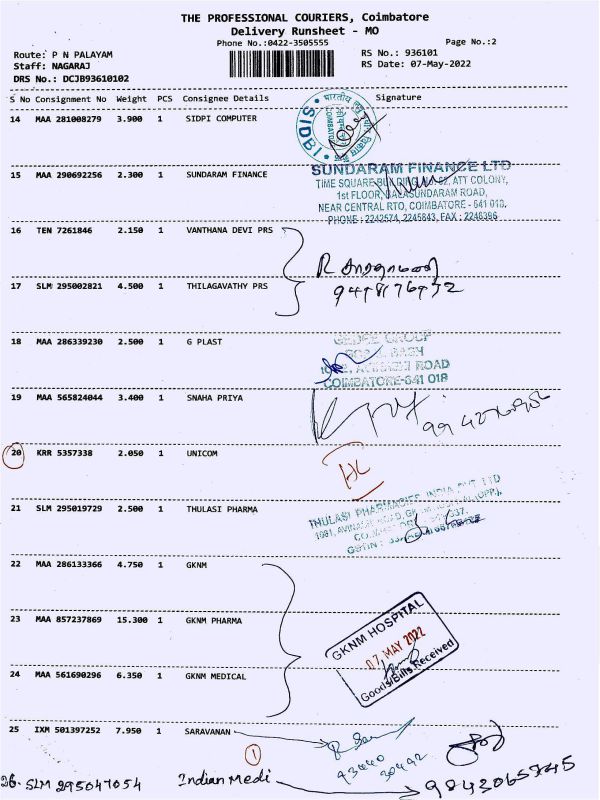 THE PROFESSIONAL COURIERS, Coimbatore
Delivery Runsheet - MO
Phone No.:0422-3505555
Page No.:2
Route: P N PALAYAM
RS No.: 936101
Staff: NAGARAJ
RS Date: 07-May-2022
DRS No.: DCJB93610102
S No Consignment No Weight PCS Consignee Details Signature
14 MAA 281008279 3.900 1 SIDPI COMPUTER
SIDBI
15 MAA 290692256 2.300 1 SUNDARAM FINANCE
SUNDARAM FINANCE LTD
TIME SQUARE BUILDING, ATT COLONY,
1st FLOOR, BALASUNDARAM ROAD,
NEAR CENTRAL RTO, COIMBATORE - 641 018.
PHONE : 2242574, 2245843, FAX : 2246396
16 TEN 7261846 2.150 1 VANTHANA DEVI PRS
17 SLM 295002821 4.500 1 THILAGAVATHY PRS
18 MAA 286339230 2.500 1 G PLAST
GEDEE GROUP
ROAD
COIMBATORE-641 018
19 MAA 565824044 3.400 1 SNAHA PRIYA
20 KRR 5357338 2.050 1 UNICOM
21 SLM 295019729 2.500 1 THULASI PHARMA
THULASI PHARMACIES INDIA PVT LTD
GSTIN :
22 MAA 286133366 4.750 1 GKNM
23 MAA 857237869 15.300 1 GKNM PHARMA
GKNM HOSPITAL
07 MAY 2022
Goods/Bills Received
24 MAA 561690296 6.350 1 GKNM MEDICAL
25 IXM 501397252 7.950 1 SARAVANAN
93440
30492
1
26. SLM 295047054 Indian Medi